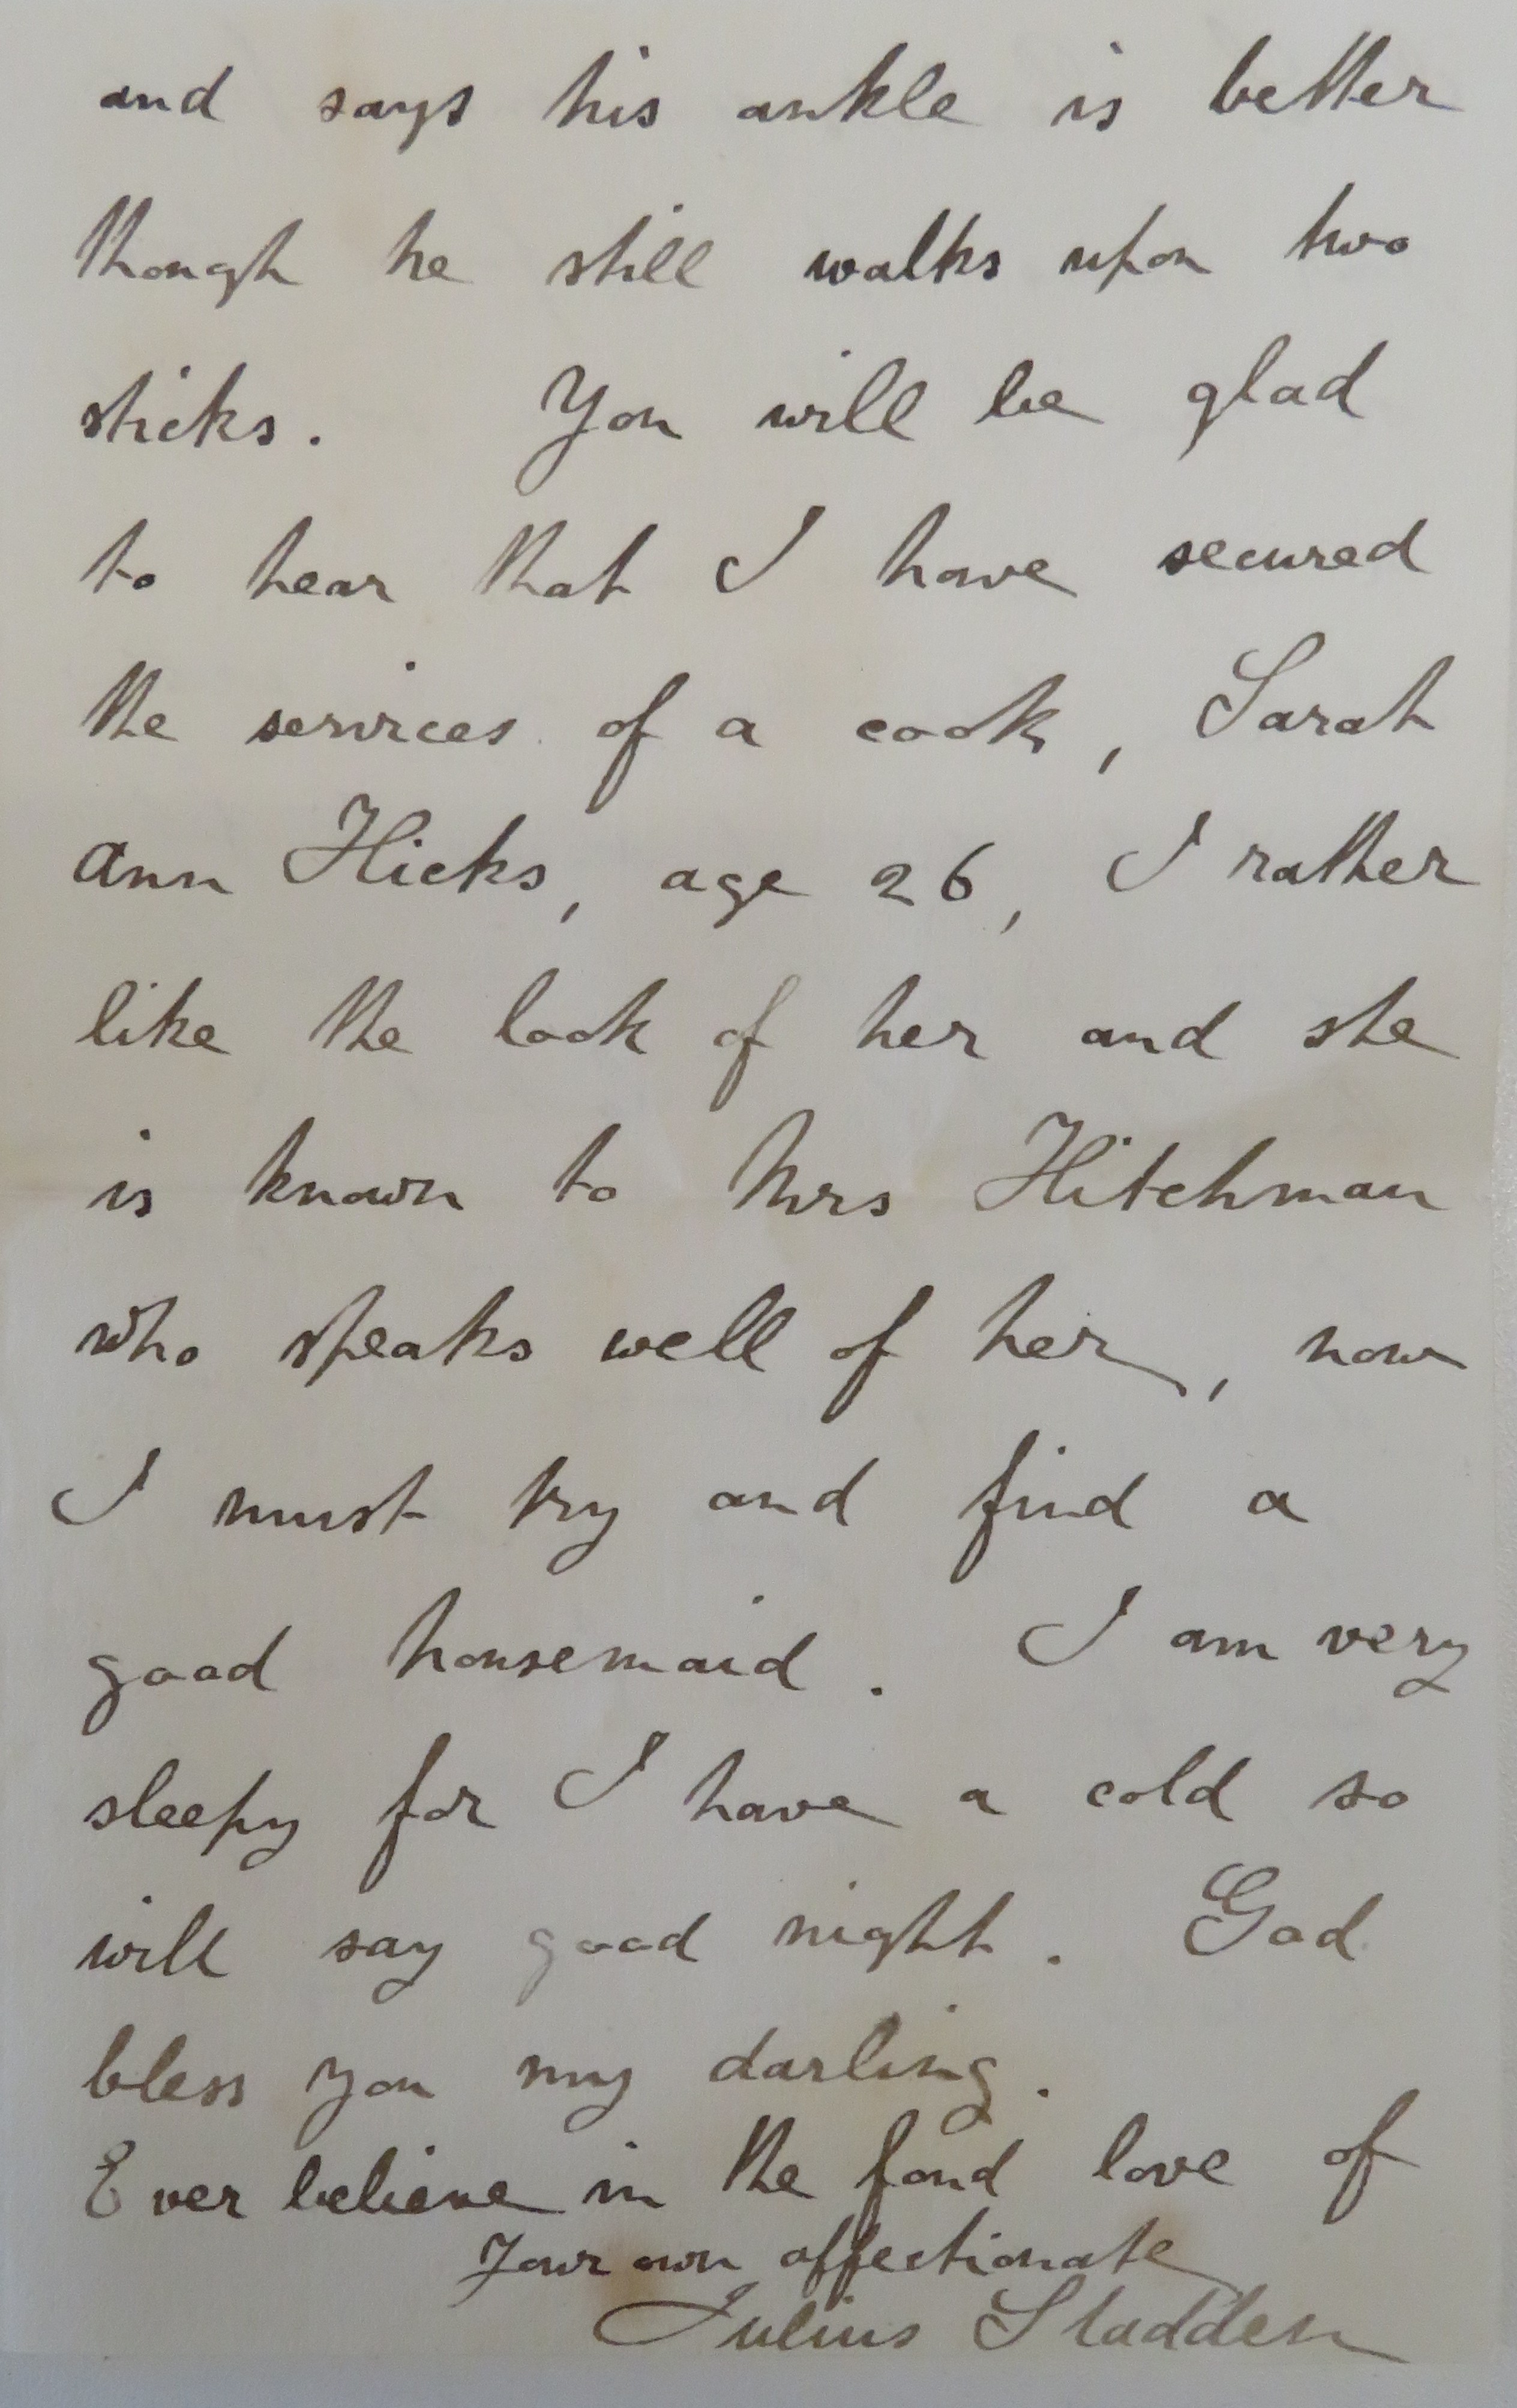 and says his ankle is better
though he still walks upon two
sticks. You will be glad
to hear that I have secured
the services of a cook, Sarah
Ann Hicks, age 26, I rather
like the look of her and she
is known to Mrs Hitchman
who speaks well of her, now
I must try and find a
good housemaid. I am very
sleepy for I have a cold so
will say good night. God
bless you my darling.
Ever believe in the fond love of
Your own affectionate
Julius Sladden